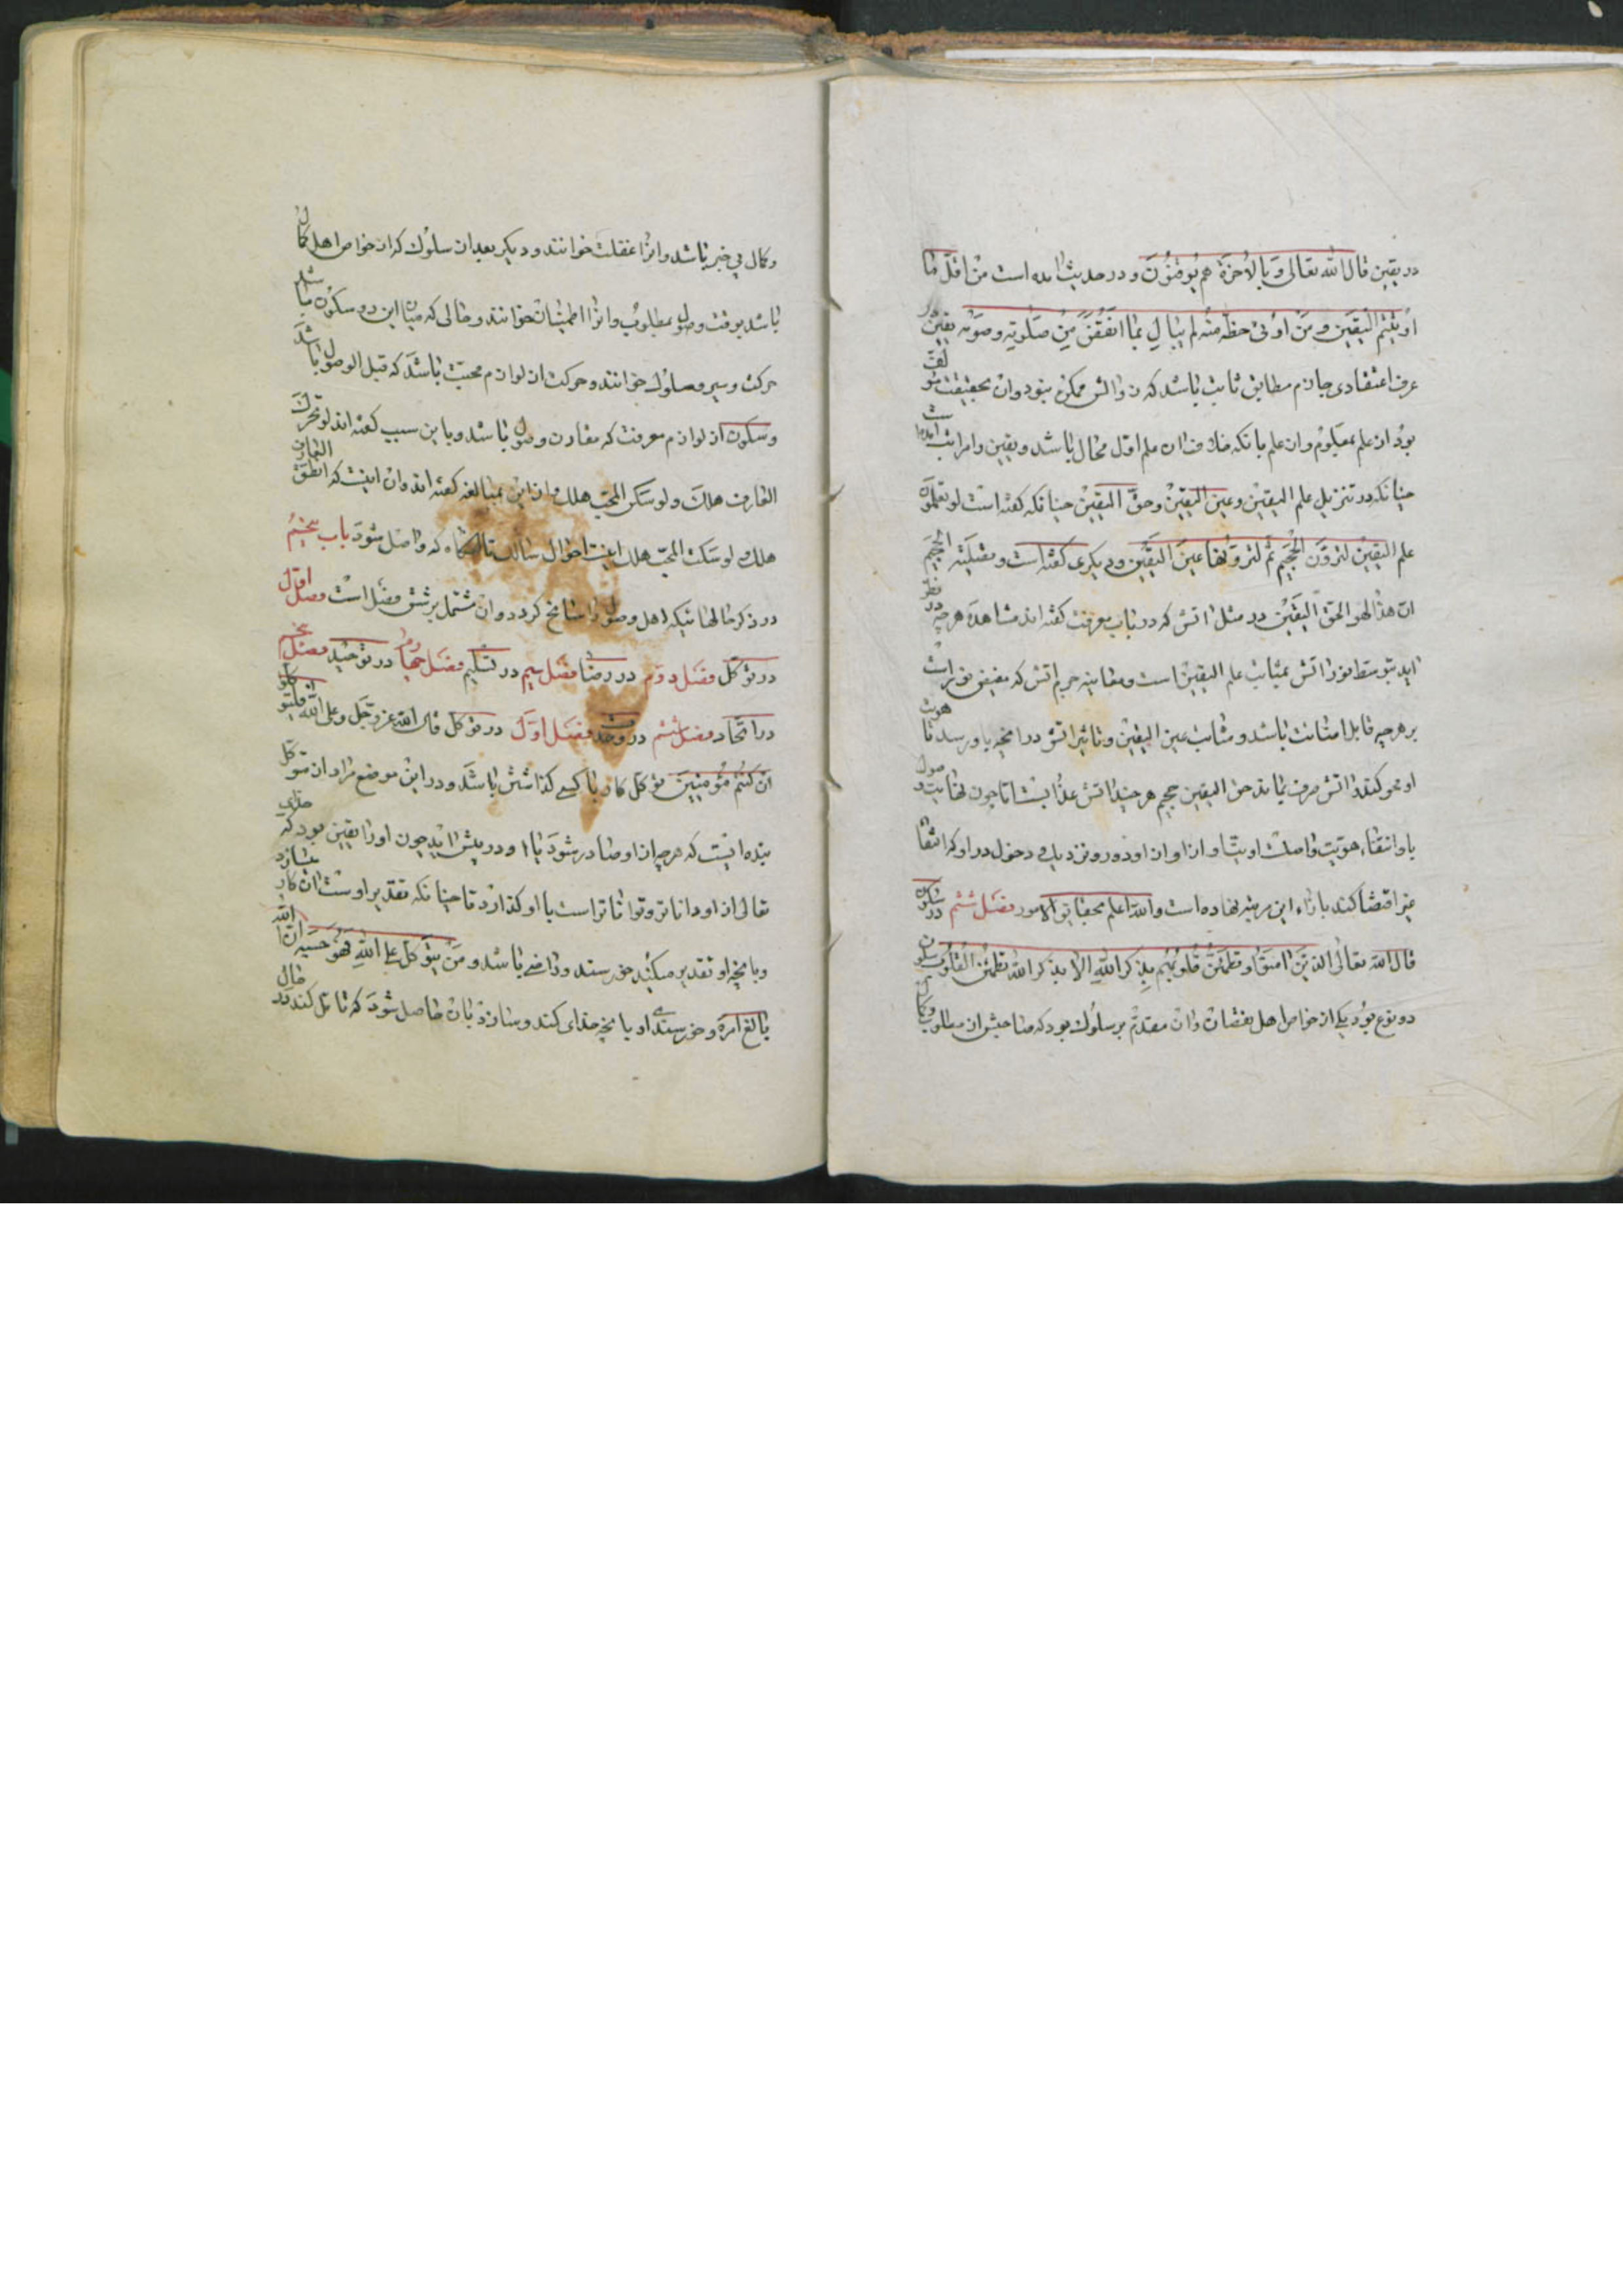 در یقین قال الله تعالی و بالاخرة هم یوقنون و در حدیث امده است من اقل ما
اوتیتم الیقین و من اوتی حظه منه لم یبال بما انتقص من صلوته و صومه یقین در
عرف اعتقادی جازم مطابق ثابت باشد که زوالش ممکن نبود وان بحقیقت مؤلف
بود از علم بمعلوم و از علم بانکه خلاف ان علم اول محال باشد و یقین را مراتب است
چنانکه در تنزیل علم الیقین و عین الیقین و حق الیقین چنانکه گفته است لو تعلمون
علم الیقین لترون الجحیم ثم لترونها عین الیقین و دیگری گفته است و تصلیة الجحیم
ان هذا لهو الحق الیقین در مثل اتش که در باب معرفت گفته اند مشاهدۀ هرچه در نظر
اید بتوسط نور اتش بمثابت علم الیقین است و معاینه جرم اتش که مفیض نور است
بر هرچه قابل اضائت باشد و مثابت عین الیقین و تاثیر اتش در انچه باو رسد تا هویت
او محو کند و اتش صرف بماند حق الیقین جحیم هرچند اتش عذابست اما چون نهایت وصول
باو انتفاء هویت واصلست رویت او از او و از دور و نزدیک و دخول در او که انتفاء
غیر اقتضا کند بازاء این مرتبه نهاده است والله اعلم بحقایق الامور فصل ششم در سکون
قال الله تعالی الذین امنوا و تطمئن قلوبهم بذکر الله الا بذکر الله تطمئن القلوب سکون
دو نوع بود یکی از خواص اهل نقصان و ان مقدم بر سلوک بود که صاحبش از مطلوب و کمال
و کمال بی خبر باشد و انرا غفلت خوانند و دیگر بعد از سلوک که از خواص اهل کمال
باشد بوقت وصول بمطلوب و انرا اطمینان خوانند و حالی که میان این دو سکون باشد
حرکت و سیر و سلوک خوانند و حرکت از لوازم محبت باشد که قبل الوصول باشد
و سکون از لوازم معرفت که مقارن وصول باشد و باین سبب گفته اند لو تحرک
العارف هلک و لو سکن المحب هلک و از این بمبالغه گفته اند وان اینست که لو نطق العارف
هلک و لو سکت المحب هلک اینست احوال سالک تا انگاه که واصل شود باب پنجم
در ذکر حالهائیکه اهل وصول را سانح گردد و ان مشتمل بر شش فصل است فصل اول
در توکل فصل دوم در رضا فصل سیم در تسلیم فصل چهارم در توحید فصل پنجم
در اتحاد فصل ششم در وحدت فصل اول در توکل قال الله عز و جل و علی الله فتوکلوا
ان کنتم مؤمنین توکل کار با کسی گذاشتن باشد و در این موضع مراد از توکل
بنده انیست که هرچه از او صادر شود یا او را در پیش اید چون او را یقین بود که خدای
تعالی از او داناتر و تواناتر است با او گذارد تا چنانکه تقدیر اوست ان کار بسازد
و بانچه او تقدیر میکند خورسند و راضی باشد و من یتوکل علی الله فهو حسبه ان الله
بالغ امره و خورسندی او بانچه خدای کند و سازد بان حاصل شود که تامل کند در حال